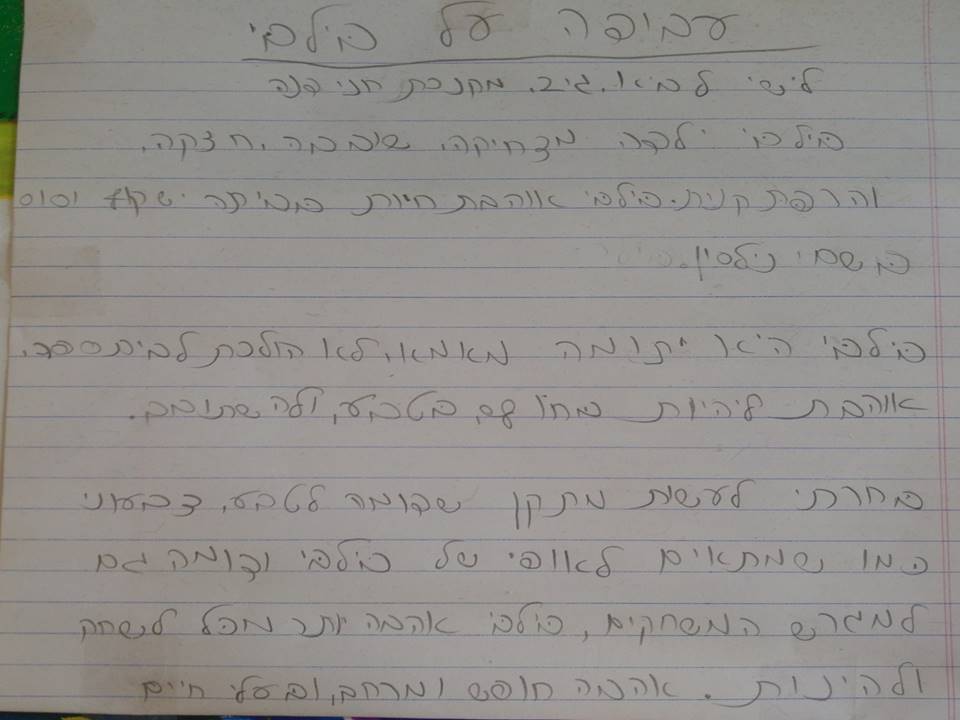 עבודה על בילבי
לישי לביא. גיב. מחנכת חני דנה
בילבי ילדה מצחיקה, שובבה, חזקה,
והרפתקנית. בילבי אוהבת חיות בביתה יש קוף וסוס
בשם נילסון.
בילבי היא יתומה מאמא, לא הולכת לבית ספר,
אוהבת ליהיות בחוץ, בטבע, ולהשתובב.
בחרתי לעשות מתקן שדומה לטבע, צבעוני
כמו שמתאים לאופי של בילבי ודומה גם
למגרש המשחקים, בילבי אהבה יותר מכל לשחק
ולהינות. אהבה חופש ומרחב, ובעלי חיים